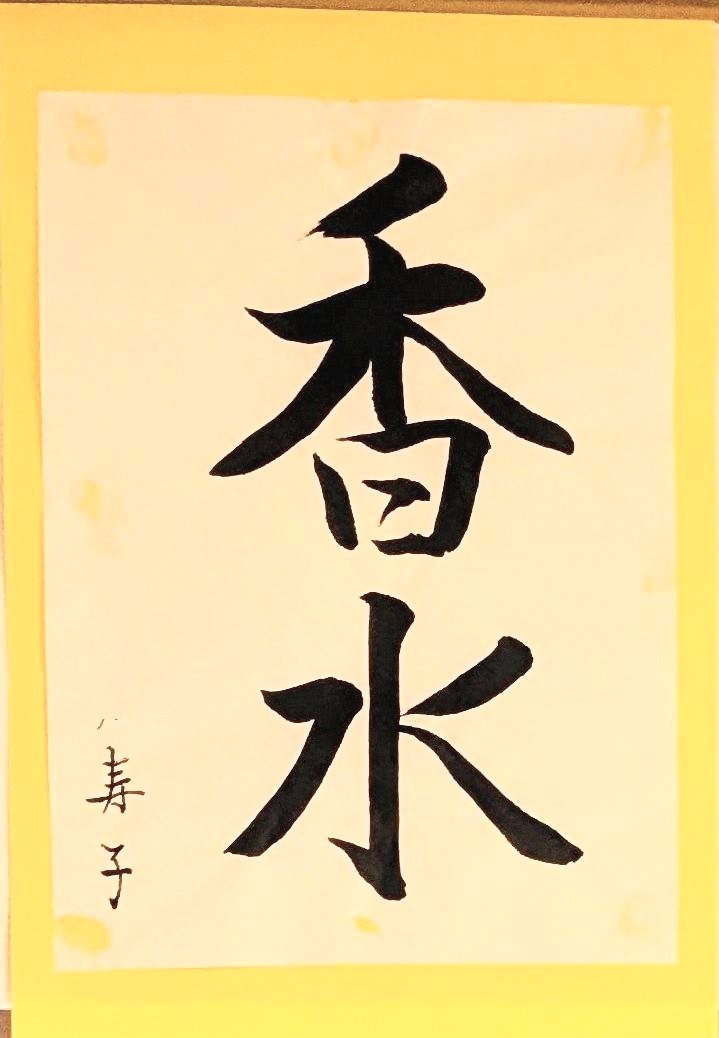 香水
寿子